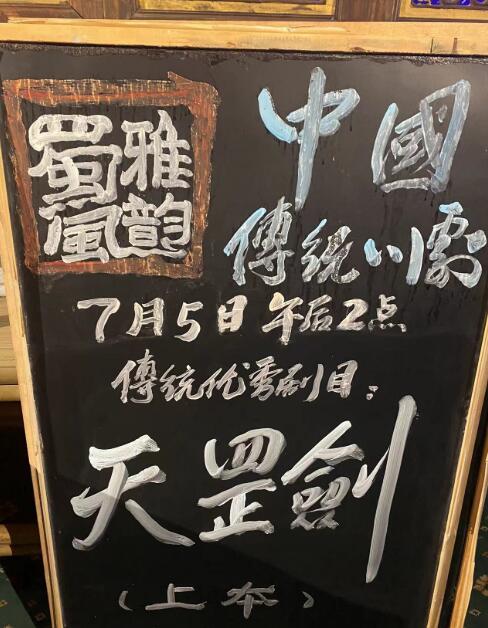 蜀風雅韵
中國
傳統川劇
7月5日午后2点
傳統优秀剧目：
天罡劍
（上本）